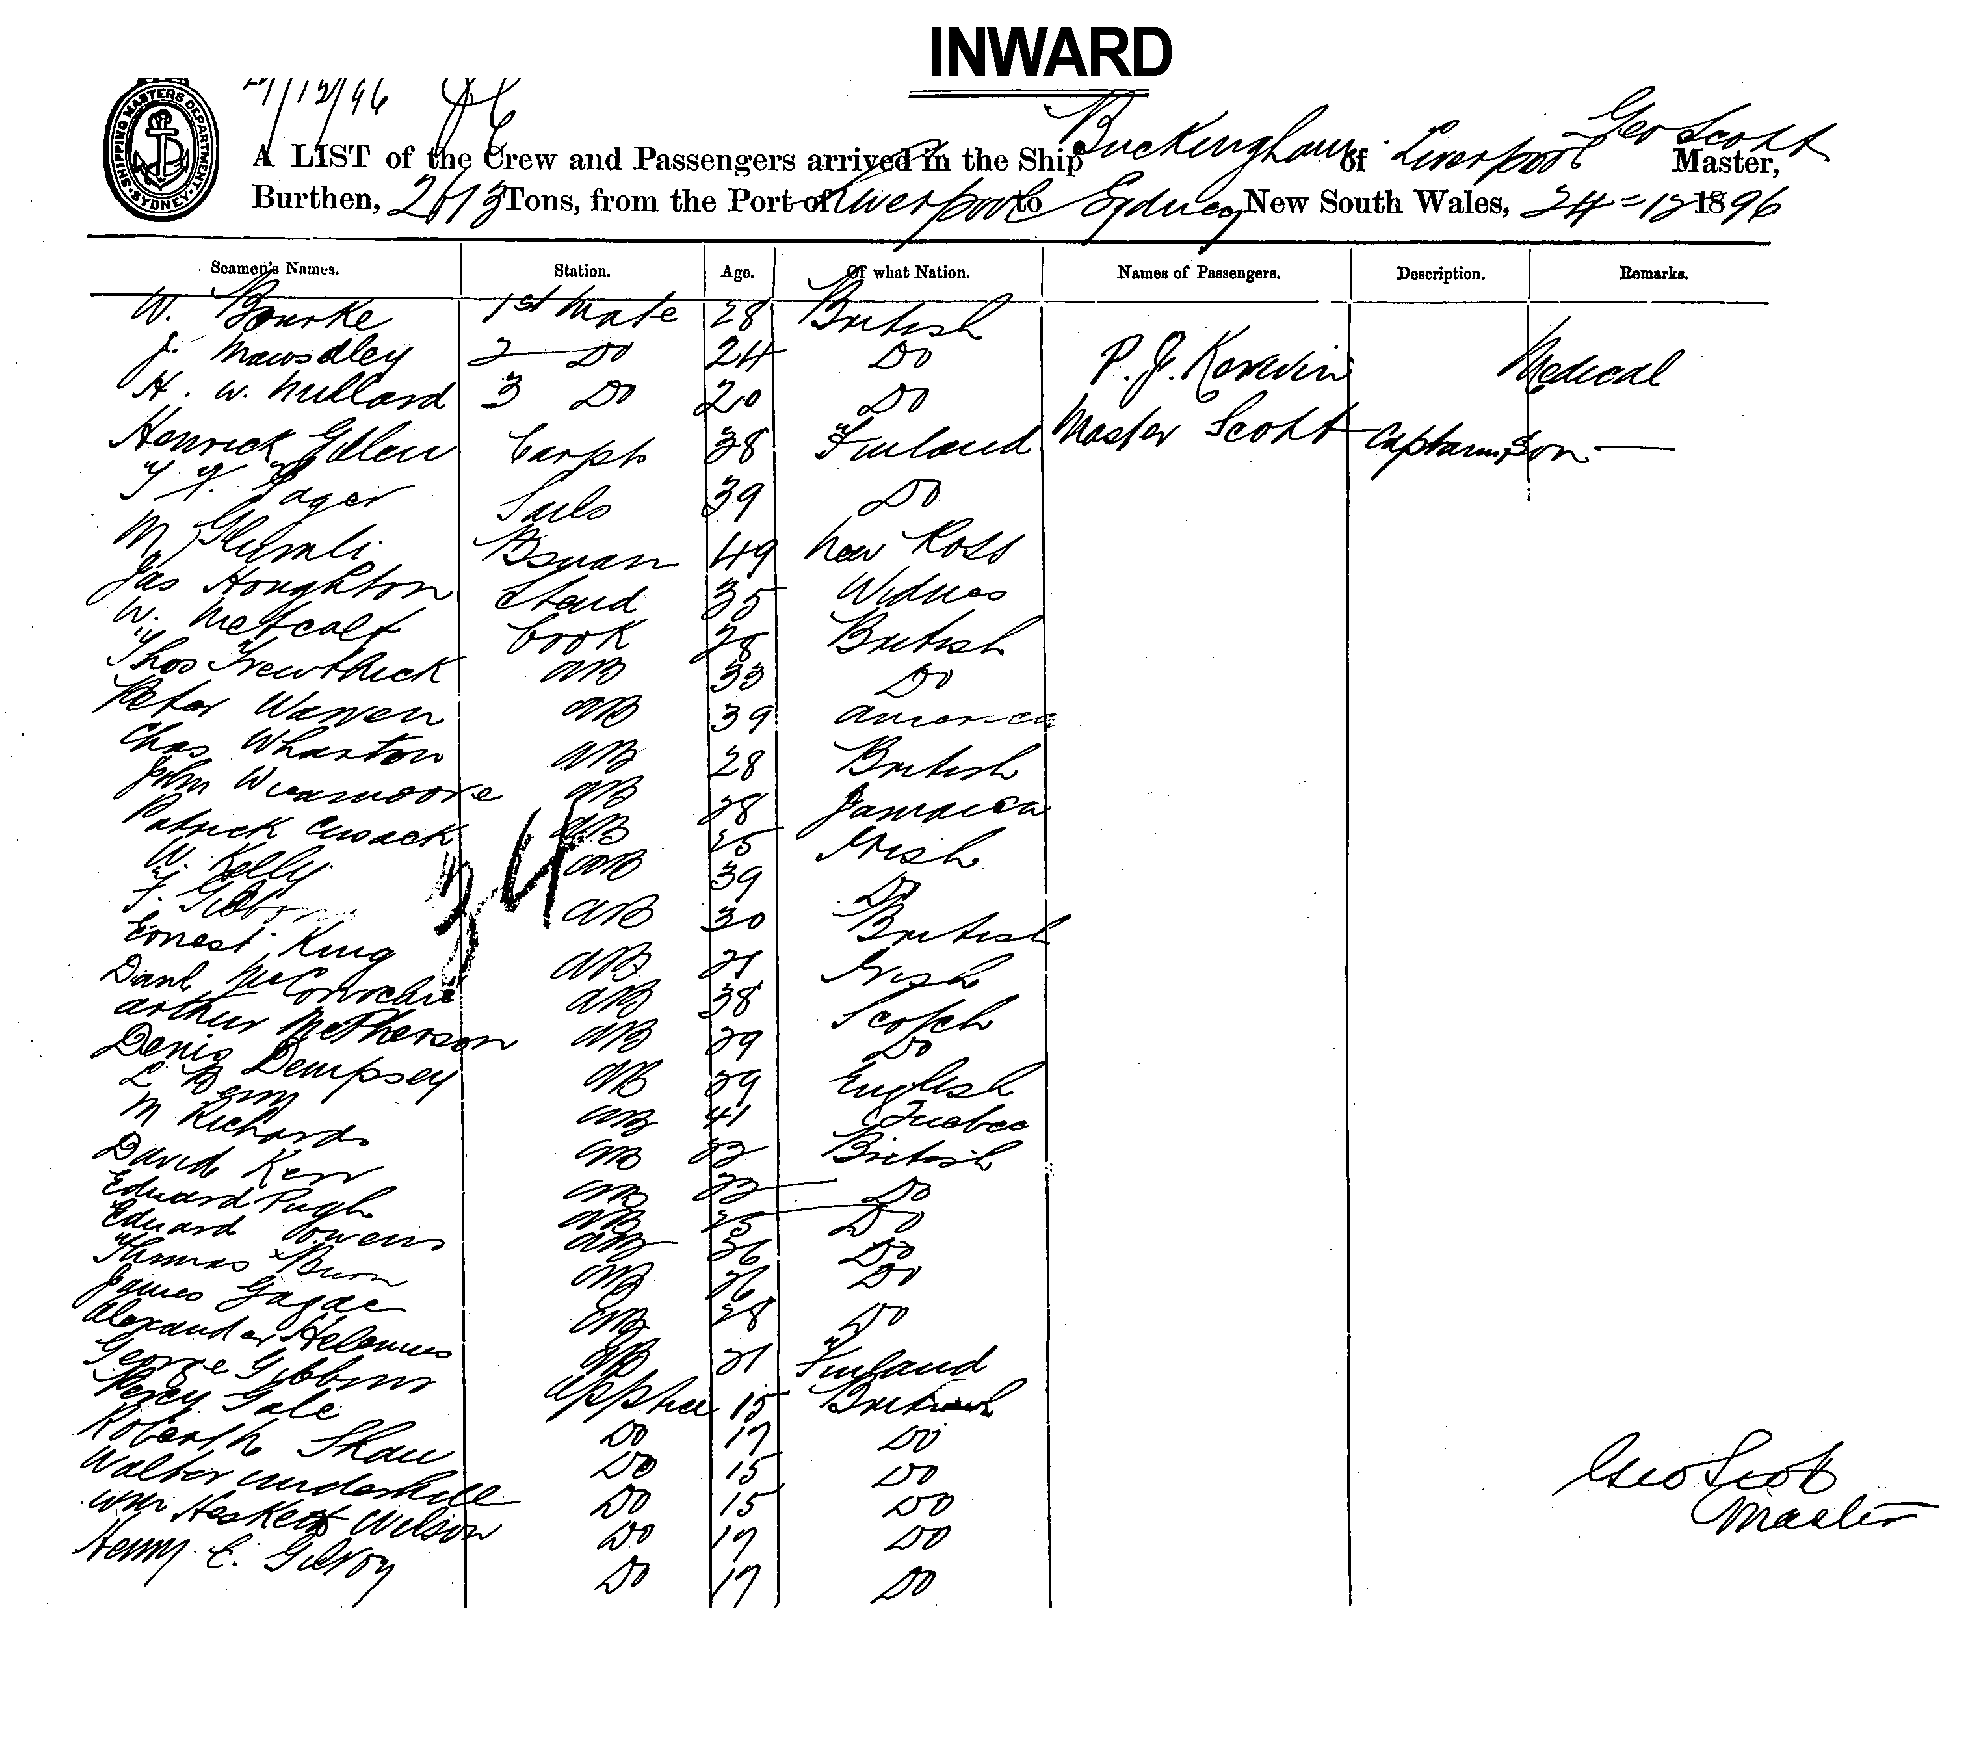 INWARD
SHIPPING MASTERS DEPARTMENT SYDNEY
/12/96
A LIST of the Crew and Passengers arrived in the Ship Buckingham of Liverpool Geo Scott Master,
Burthen, 2613 Tons, from the Port of Liverpool to Sydney New South Wales, 24-12 1896
Seamen's Names. Station. Age. Of what Nation. Names of Passengers. Description. Remarks.
W. Bourke 1st Mate 28 British
J. Mawsdley 2 Do 24 Do P. J. Kerwin Medical
H. W. Millard 3 Do 20 Do
Henrick Gillen Carptr 38 Finland Master Scott Captains Son
Sails 39 Do
M Glumli Bsman 49 New Ross
Jas Houghton Steud 35 Widnes
W. Metcalf Cook 28 British
Thos Trewthick AB 33 Do
Peter Warren AB 39 America
Chas Wharton AB 28 British
John AB 28 Jamaica
Patrick Cusack AB 25 Irish
W. Kelly AB 39 Do
34
F. AB 30 British
Ernest King AB 21 Irish
Danl McConochie AB 38 Scotch
Arthur McPherson AB 29 Do
Denis Dempsey AB 29 English
L AB 41 Quebec
M Richards AB British
David Kerr AB Do
Edward Pugh AB 25 Do
Edward Owens AB 36 Do
Thomas AB 26 Do
James AB 28 Do
Alexander Helenius AB 21 Finland
George Gibbons Apptice 15 British
Percy Gale Do 17 Do
Robert Shaw Do 15 Do
Walter Underhill Do 15 Do
Wm Hesketh Wilson Do 17 Do
Henry E. Gilroy Do 17 Do
Geo Scott
Master